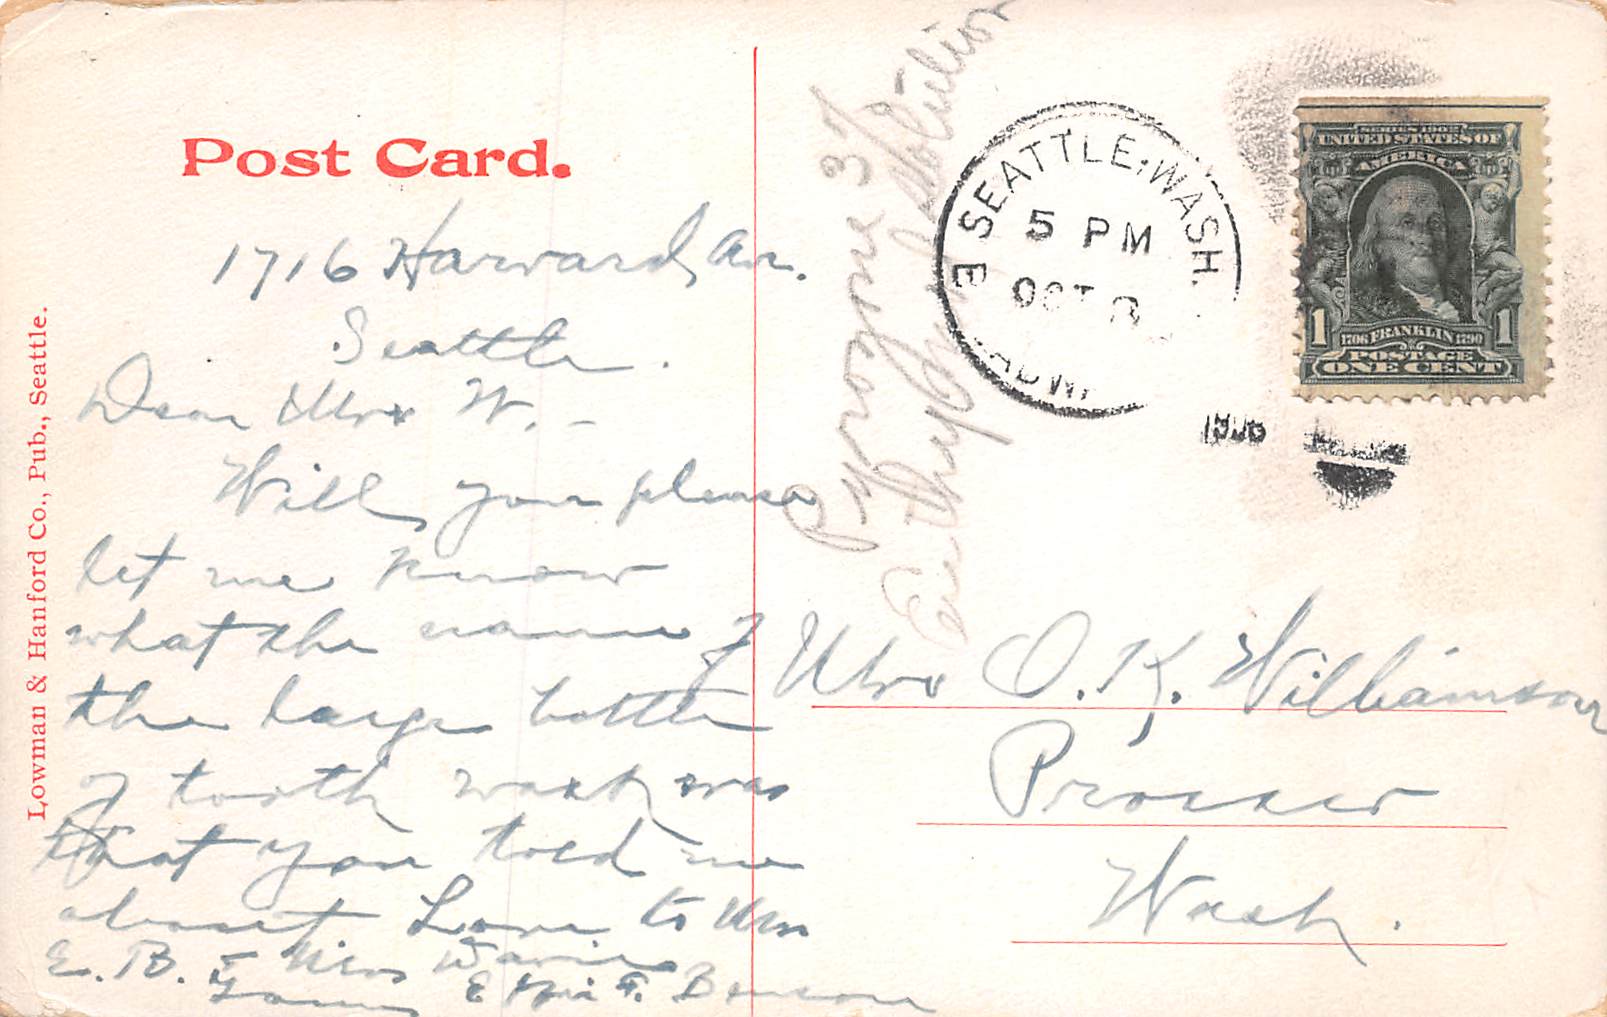 Post Card.
1716 Harvard Av.
Seattle.
Dear Mrs W. -
Will you please
let me know
what the name of
the large bottle
of tooth wash was
that you told me
about Love to Mrs
E. B. & Mrs
Yours Effie F. Benson
Lowman & Hanford Co., Pub., Seattle.
Pyrozone 3%
SEATTLE, WASH.
5 PM
OCT
SERIES 1902
UNITED STATES OF
AMERICA
1 1
1706 FRANKLIN 1790
POSTAGE
ONE CENT
Mrs O. K. Williamson
Prosser
Wash.